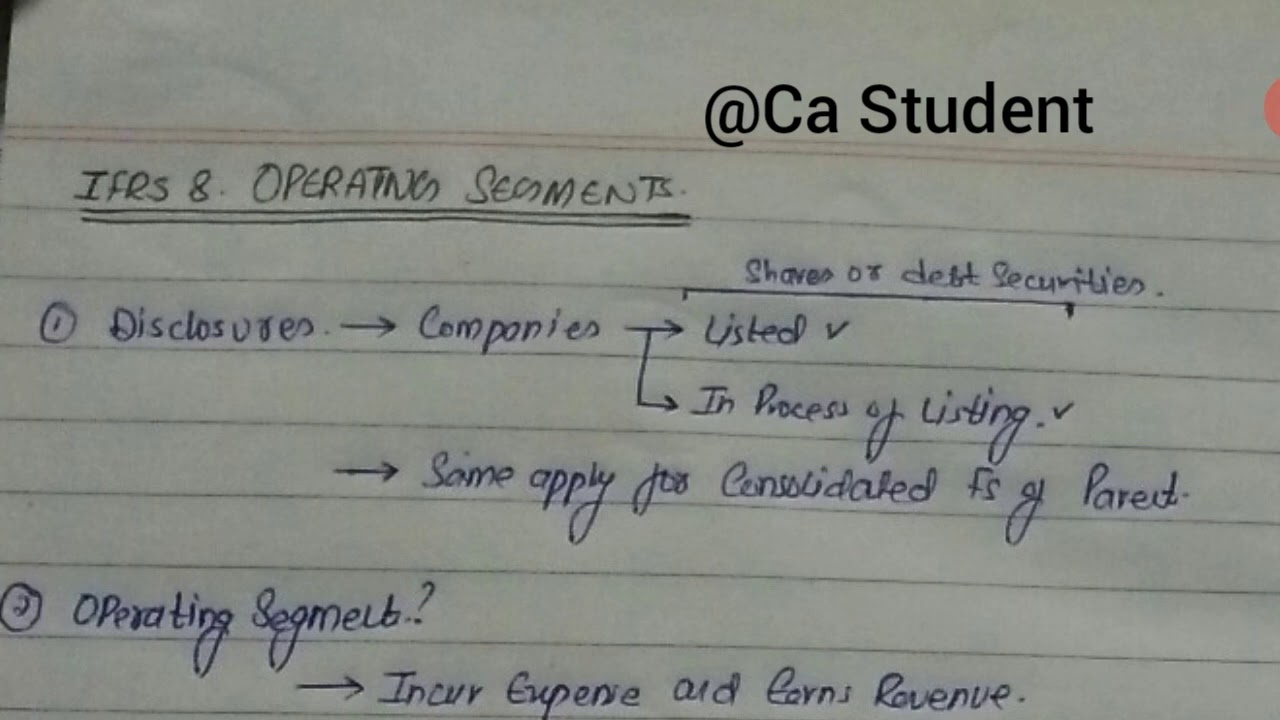 @Ca Student
IFRS 8. OPERATING SEGMENTS.
Shares or debt Securities.
① Disclosures. → Companies → Listed ✓
→ In Process of Listing. ✓
→ Same apply for Consolidated FS of Parent.
② Operating Segment.?
→ Incur Expense and Earns Revenue.